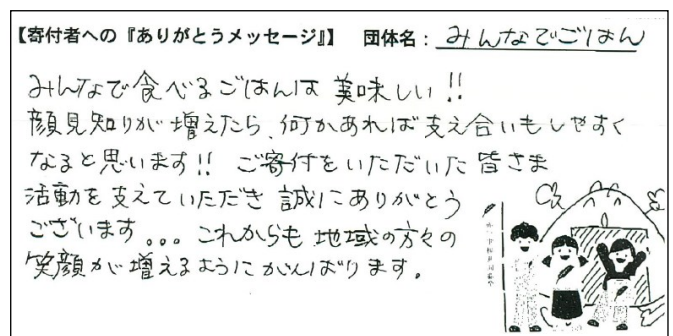 【寄付者への『ありがとうメッセージ』】 団体名：みんなでごはん
みんなで食べるごはんは 美味しい!!
顔見知りが増えたら、何かあれば支え合いもしやすく
なると思います!! ご寄付をいただいた皆さま
活動を支えていただき誠にありがとう
ございます。。。これからも地域の方々の
笑顔が増えるようにがんばります。